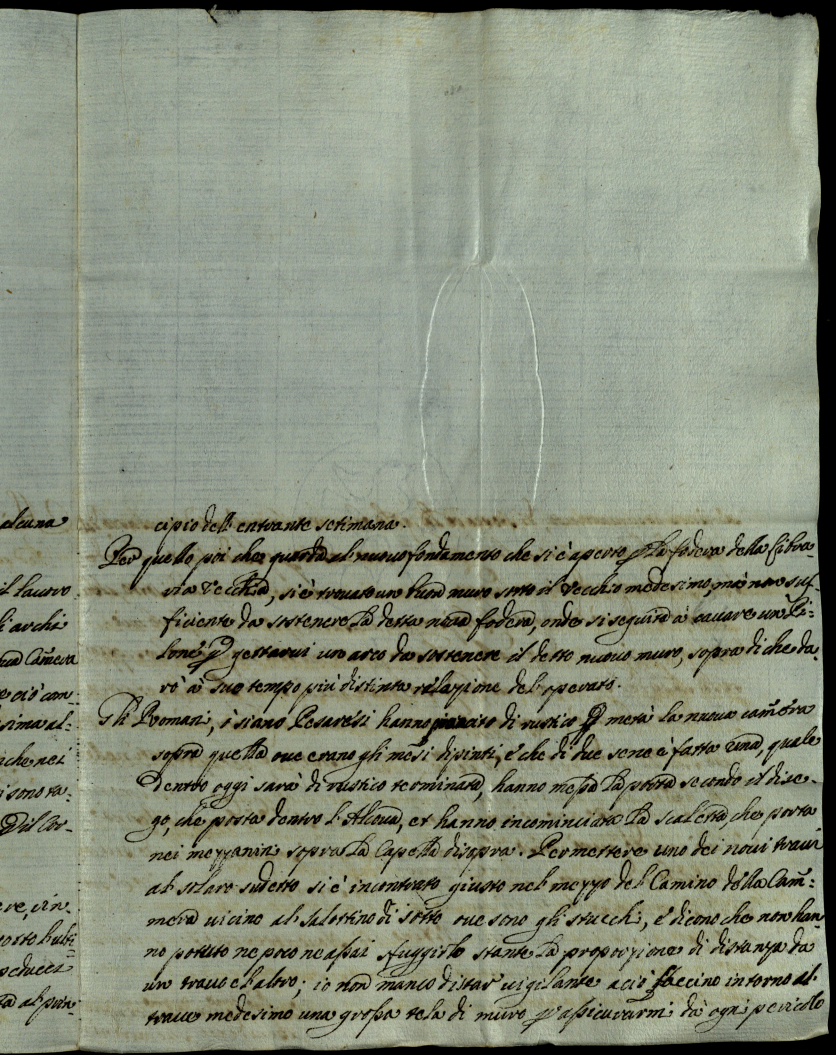 alcuna
il lauoro
li archi
ua Cam̃era
e ciò con=
sima al=
nche nei
i sono ra=
Dil Cor=
ere, cin=
posto
peducci
tà al prin=
cipio dell'entrante setimana.
Per quello poi che guarda al nuouo fondamento che si è aperto p la fodera della Libra=
ria Vecchia, si è trouato un buon muro sotto il Vecchio medesimo, mà non suf=
ficiente da sostenere la detta noua fodera, onde si seguita à cauare un Pi=
lone p gettarui un arco da sostenere il detto nuouo muro, sopra di che da=
rò à suo tempo più distinta relazione del operato.
Gli Romani, ò siano Pesaresi hanno di rustico p metà la nuoua cam̃era
sopra quella oue erano gli mesi dipinti, è che di due sene è fatta una, quale
dentro oggi sarà di rustico terminata, hanno messa la porta secondo il dise=
go, che porta dentro l'Alcoua, et hanno incominciata la scaletta, che porta
nei mezzanini sopra la Capella disopra. Per mettere uno dei noui traui
al solaro sudetto si è incontrato giusto nel mezzo del Camino della Cam̃=
mera uicino al salottino di sotto oue sono gli stucchi, è dicono che non han=
no potuto ne poco ne assai sfuggirlo stante la proporzione di distanza da
un trauo el'altro; io non manco di star uigilante aciò faccino intorno al
trauo medesimo una grossa tela di muro p assicurarmi dà ogni pericolo